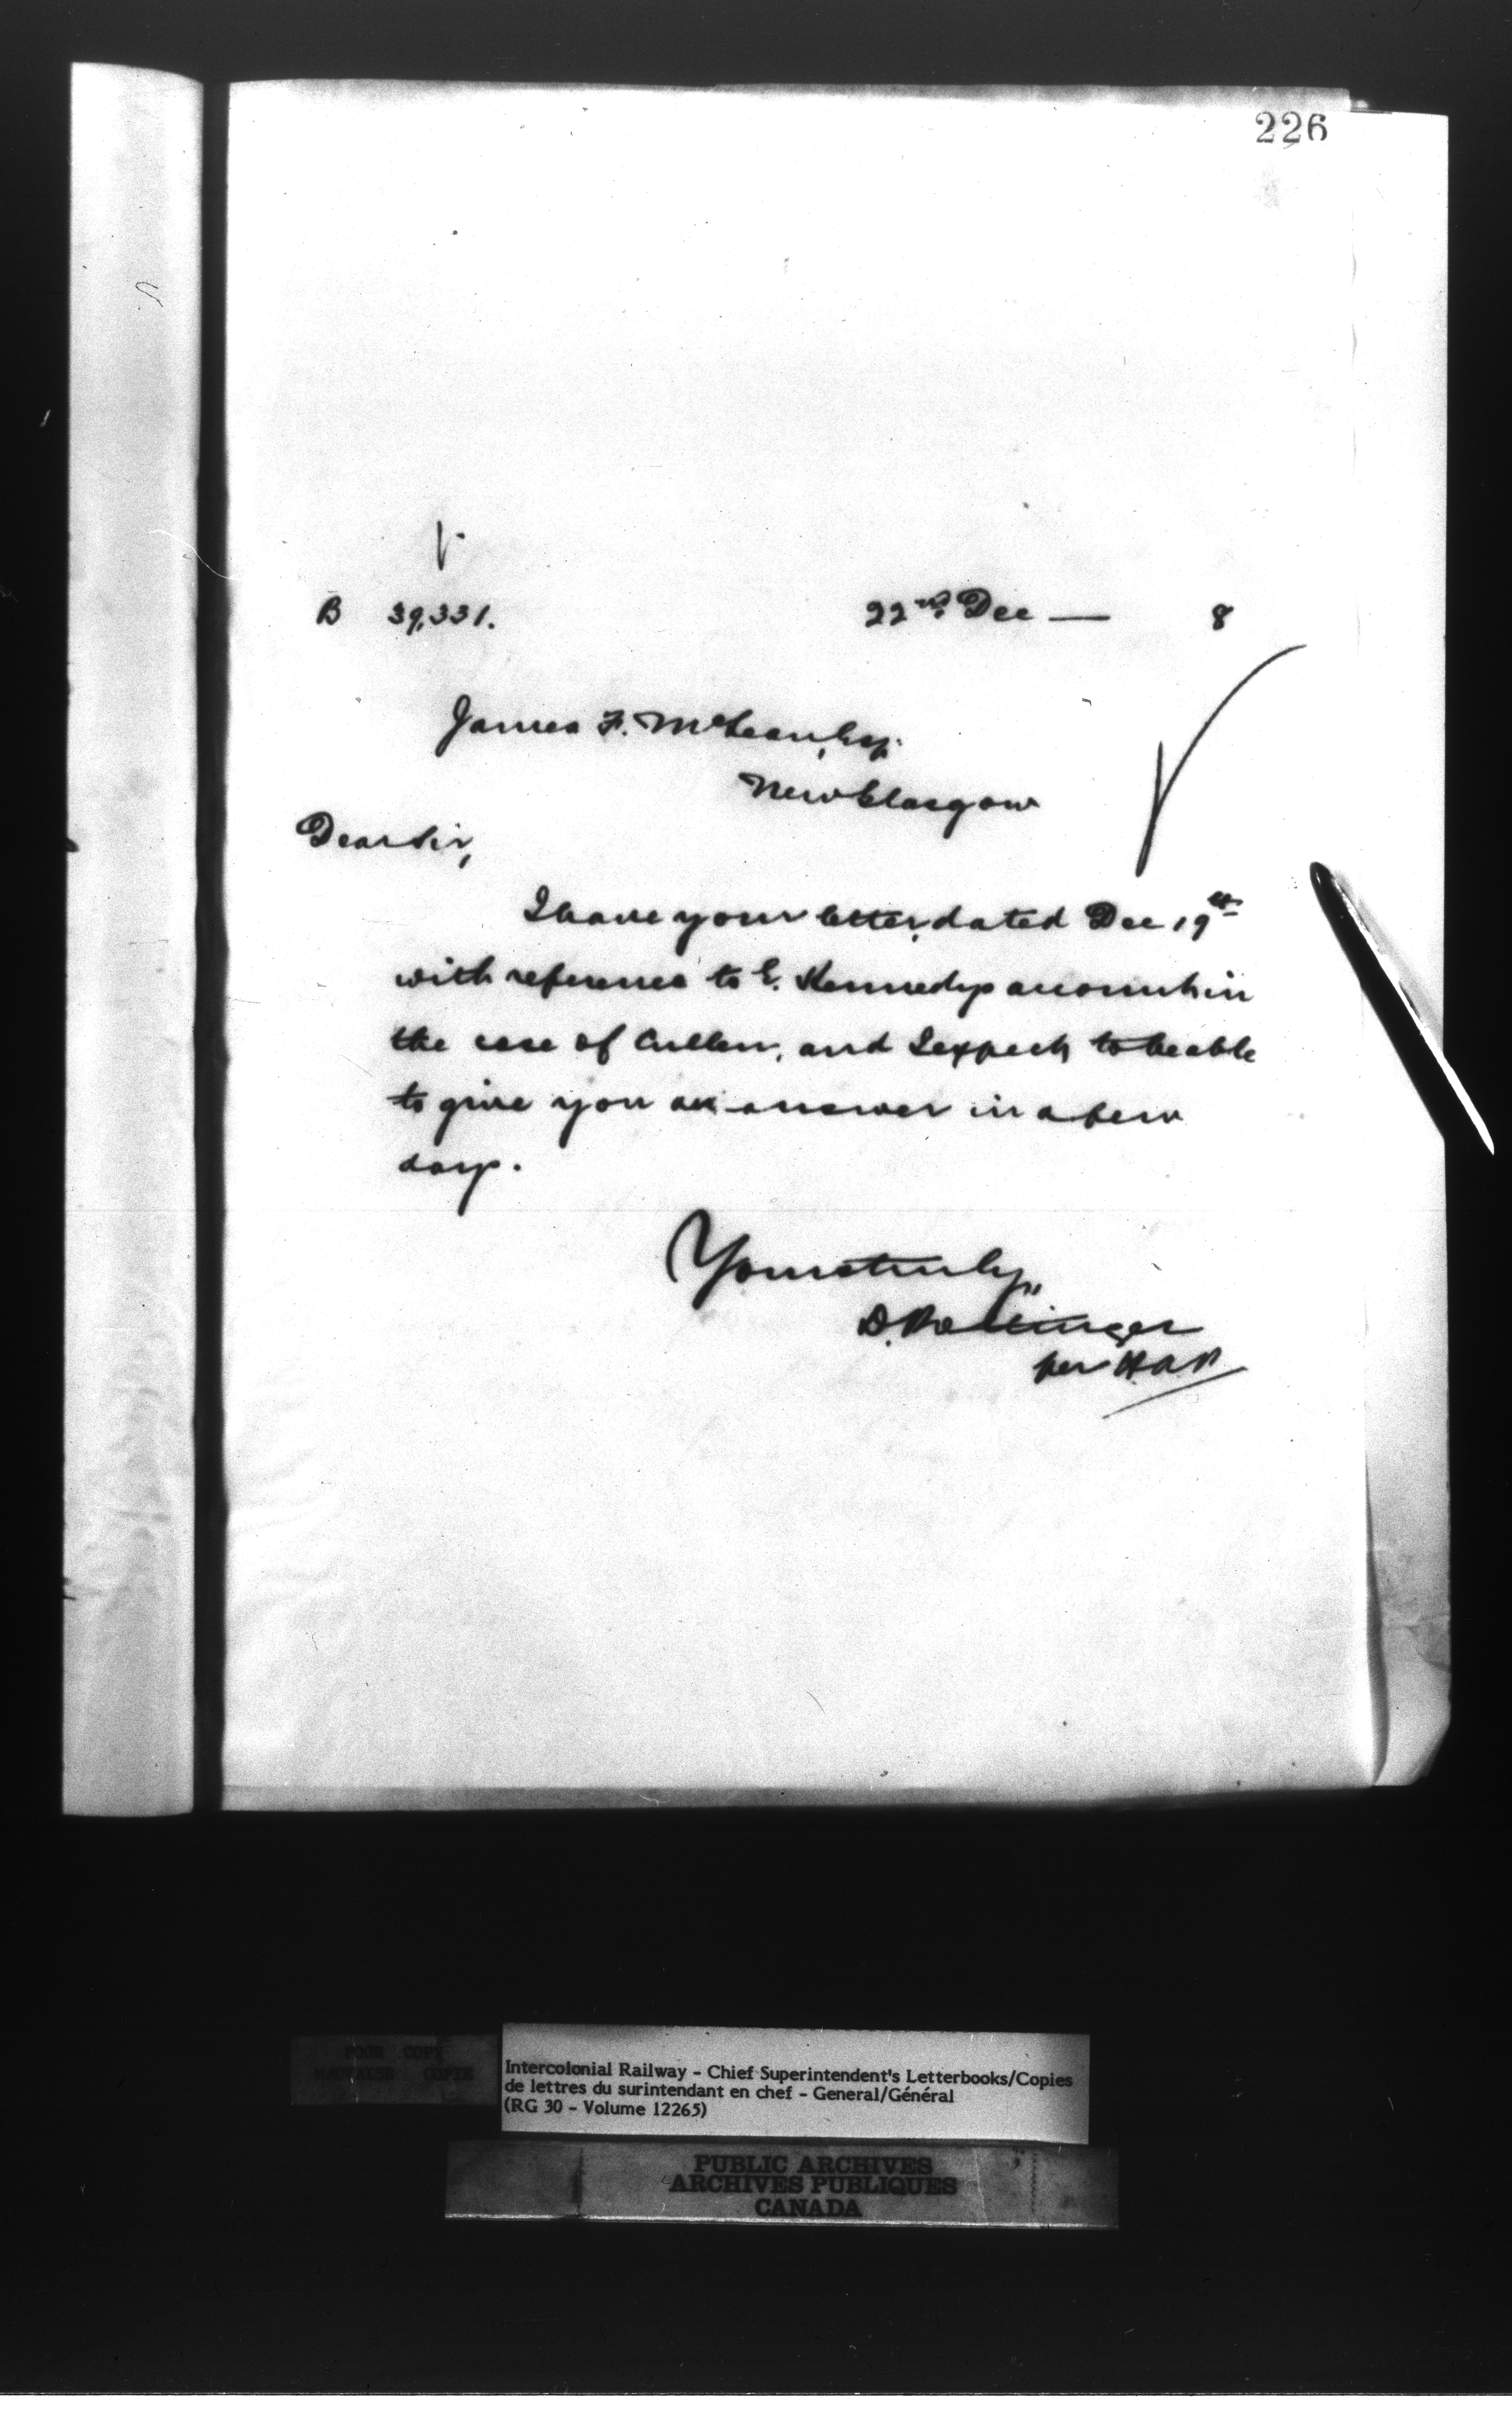 226
B 39,331. 22nd Dec — 8
James F. McLean, Esq.
New Glasgow
Dear Sir,
I have your letter, dated Dec 19th
with reference to E. Kennedys account in
the case of Cullen, and I expect to be able
to give you an answer in a few
days.
Yours truly,
D. Pottinger
per
POOR COPY
MAUVAISE COPIE
Intercolonial Railway - Chief Superintendent's Letterbooks/Copies
de lettres du surintendant en chef - General/Général
(RG 30 - Volume 12265)
PUBLIC ARCHIVES
ARCHIVES PUBLIQUES
CANADA